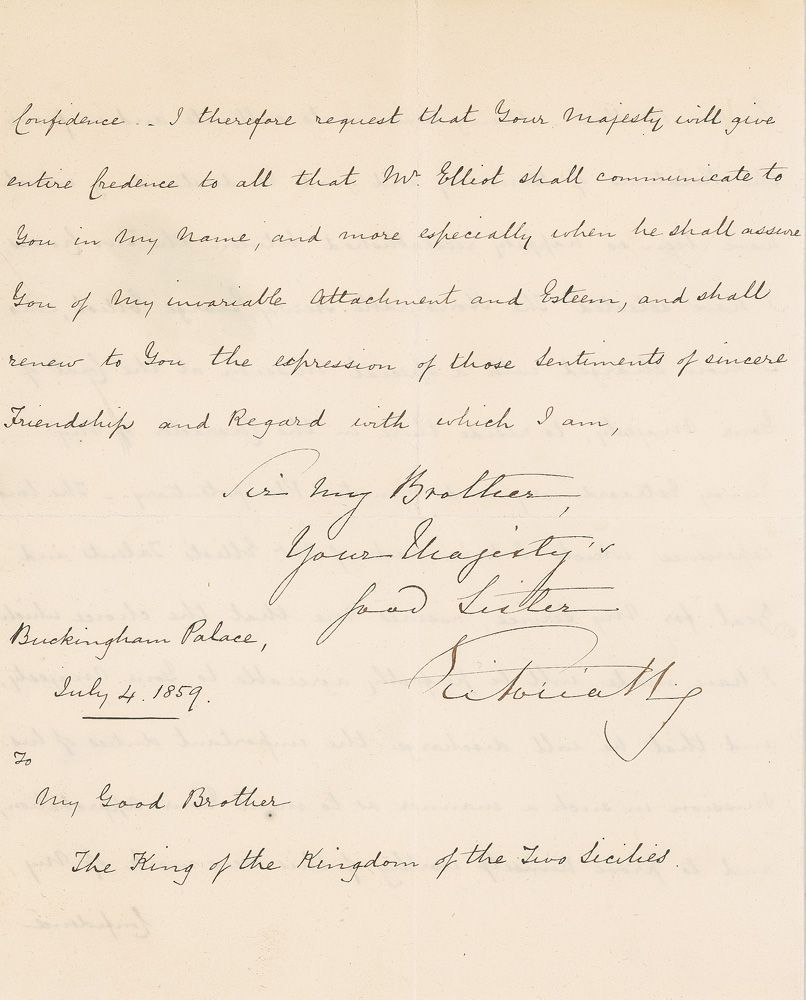 Confidence. - I therefore request that Your Majesty will give
entire Credence to all that Mr. Elliot shall communicate to
You in My Name, and more especially when he shall assure
You of My invariable Attachment and Esteem, and shall
renew to You the expression of those Sentiments of sincere
Friendship and Regard with which I am,
Sir My Brother,
Your Majesty's
good Sister
Victoria R.
Buckingham Palace,
July 4. 1859.
To
My Good Brother
The King of the Kingdom of the Two Sicilies.